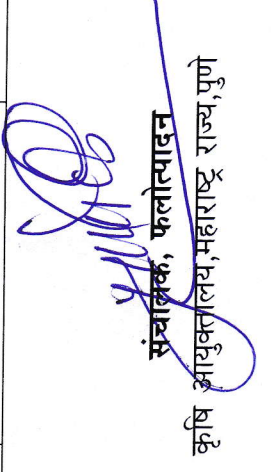 संचालक, फलोत्पादन
कृषि आयुक्तालय,महाराष्ट्र राज्य,पुणे